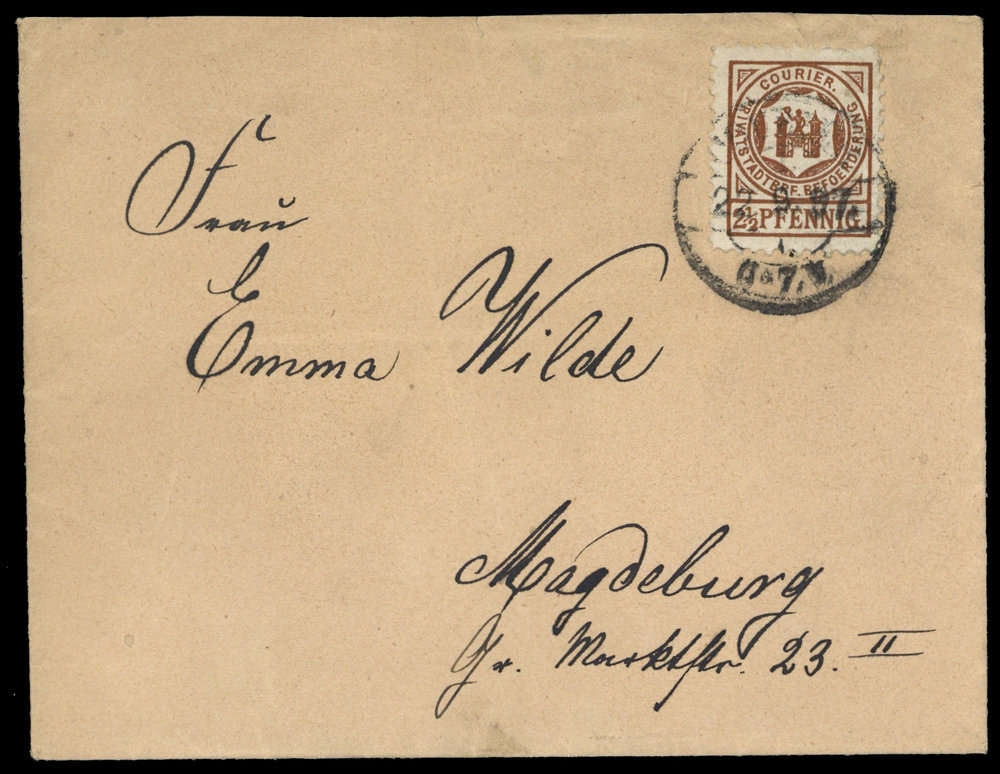 COURIER.
PRIVATSTADTBRF. BEFOERDERUNG
2½ PFENNIG
Frau
Emma Wilde
Magdeburg
Gr. Marktstr. 23. II